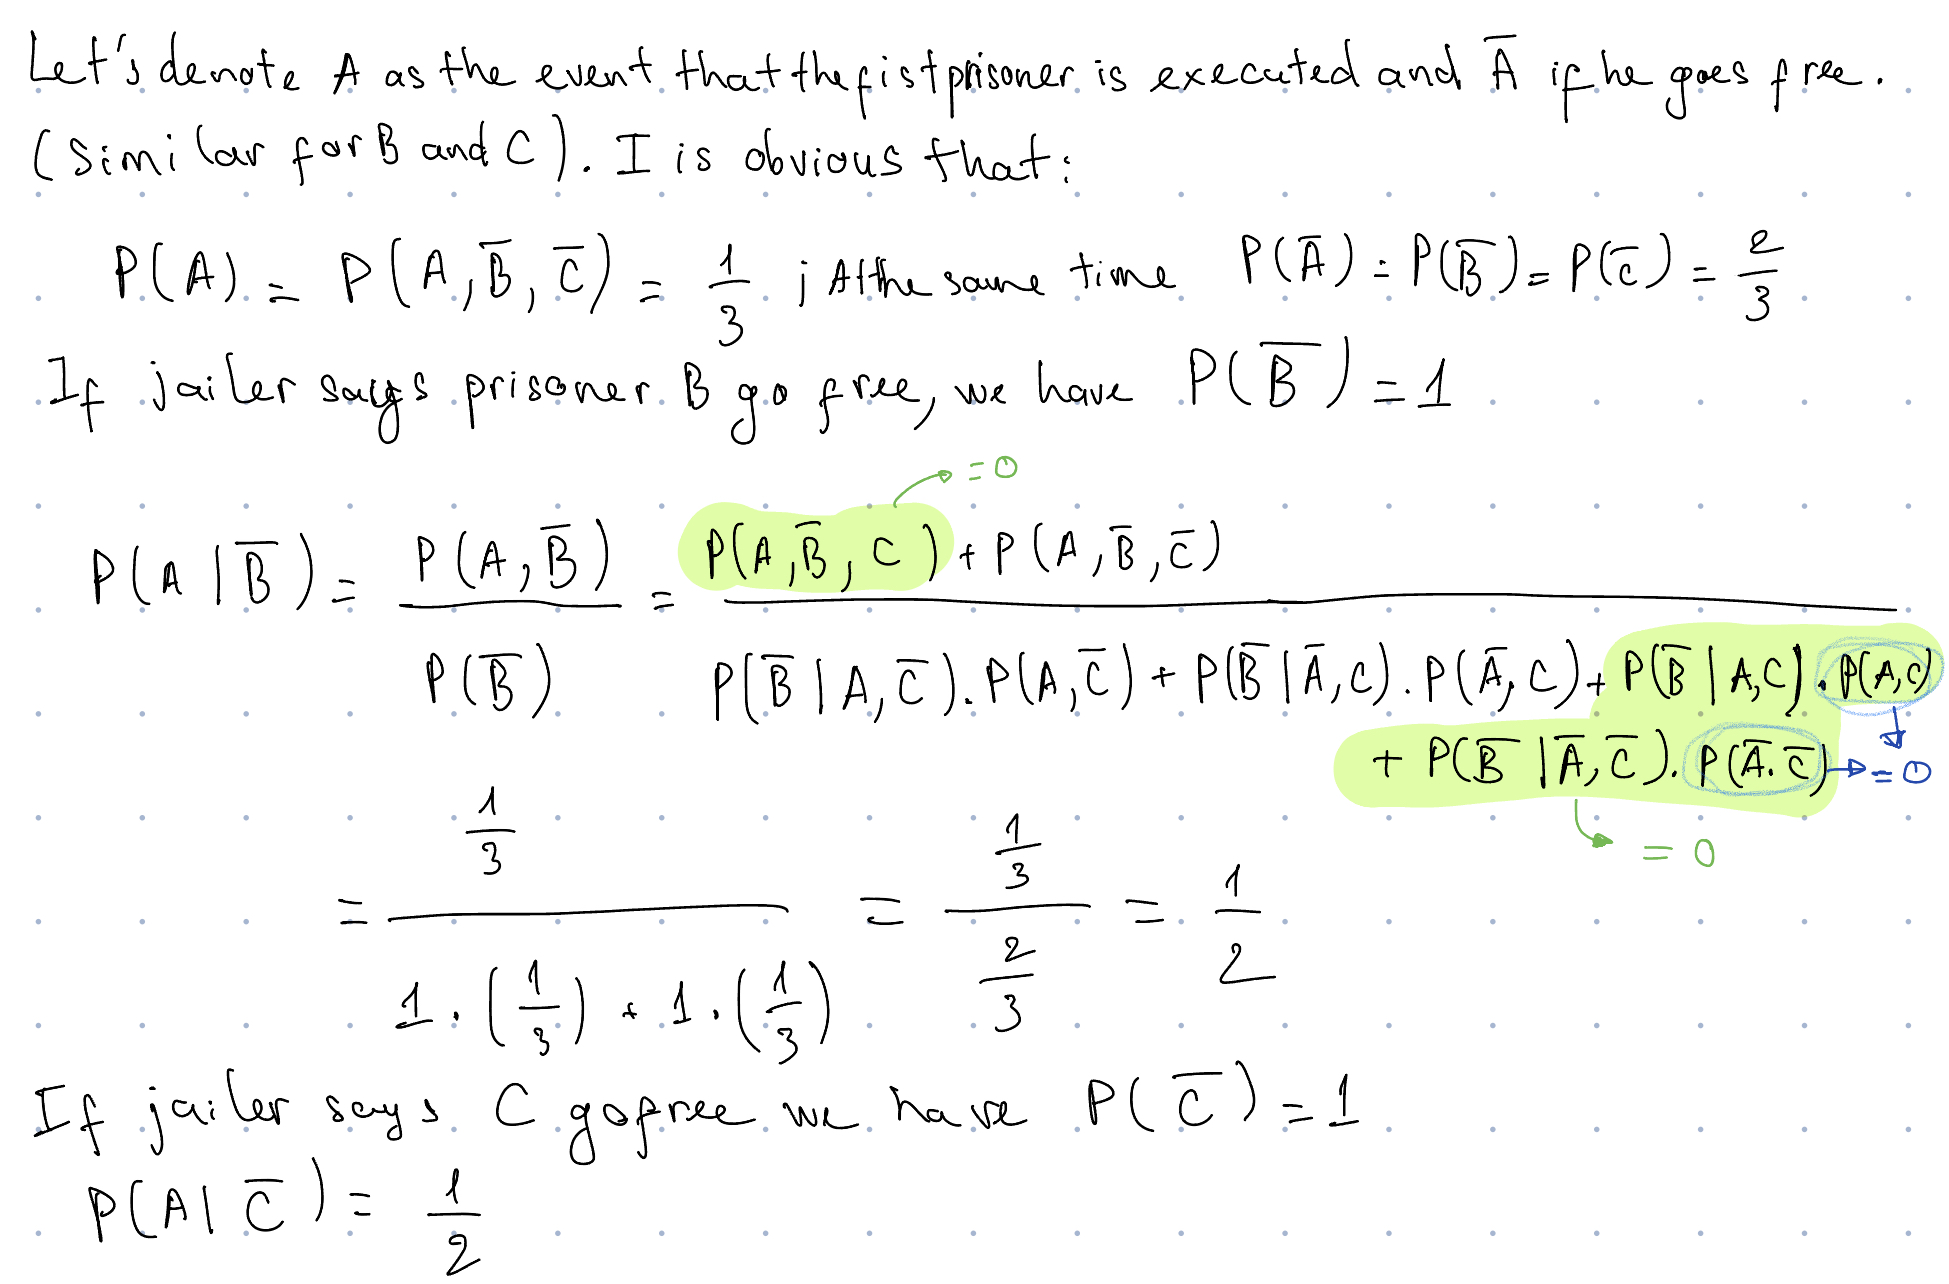 Let's denote A as the event that the fist prisoner is executed and A̅ if he goes free.
(Similar for B and C). I is obvious that:
P(A) = P(A, B̅, C̅) = 1/3 ; At the same time P(A̅) = P(B̅) = P(C̅) = 2/3
If jailer says prisoner B go free, we have P(B̅) = 1
= 0
P(A | B̅) = P(A, B̅) / P(B̅) = P(A, B̅, C) + P(A, B̅, C̅)
P(B̅ | A, C̅). P(A, C̅) + P(B̅ | A̅, C). P(A̅, C) + P(B̅ | A, C). P(A, C)
+ P(B̅ | A̅, C̅). P(A̅. C̅) = 0
= 0
= 1/3 / (1. (1/3) + 1. (1/3)) = 1/3 / 2/3 = 1/2
If jailer says C go free we have P(C̅) = 1
P(A | C̅) = 1/2